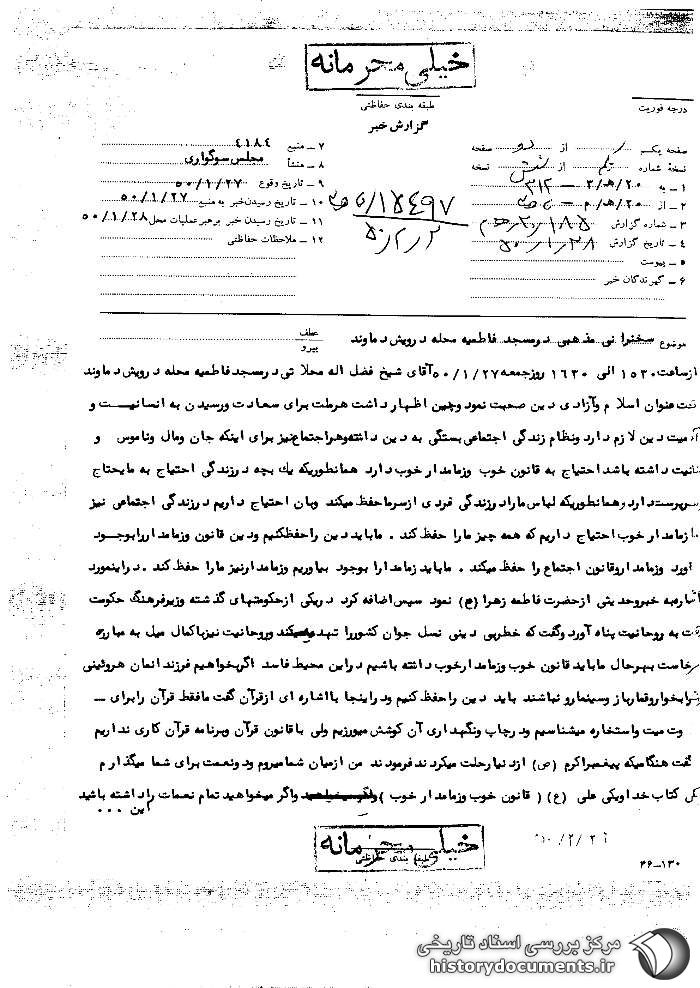 خیلی محرمانه
طبقه بندی حفاظتی
گزارش خبر
درجه فوریت
صفحه یکم از دو صفحه
نسخه شماره یکم از شش نسخه
۱ ـ به ۲۰/هـ/۳ ـ ۳۱۲
۲ ـ از ۲۰/هـ/م
۳ ـ شماره گزارش
۴ ـ تاریخ گزارش ۵۰/۱/۲۸
۵ ـ پیوست
۶ ـ گیرندگان خبر
۷ ـ منبع ۴۱۸۴
۸ ـ منشأ مجلس سوگواری
۹ ـ تاریخ وقوع ۵۰/۱/۲۷
۱۰ ـ تاریخ رسیدن خبر به منبع ۵۰/۱/۲۷
۱۱ ـ تاریخ رسیدن خبر برهبر عملیات محل ۵۰/۱/۲۸
۱۲ ـ ملاحظات حفاظتی
۵۰/۲/۲
موضوع سخنرانی مذهبی در مسجد فاطمیه محله درویش دماوند
عطف
پیرو
ازساعت ۱۵۳۰ الی ۱۶۳۰ روز جمعه ۵۰/۱/۲۷ آقای شیخ فضل اله محلاتی در مسجد فاطمیه محله درویش دماوند
تحت عنوان اسلام وآزادی دین صحبت نمود وچنین اظهار داشت هرملت برای سعادت ورسیدن به انسانیت و
آدمیت دین لازم دارد ونظام زندگی اجتماعی بستگی به دین داشته وهراجتماع نیز برای اینکه جان ومال وناموس و
داشته باشد احتیاج به قانون خوب وزمامدار خوب دارد همانطوریکه یك بچه درزندگی احتیاج به مایحتاج
سرپرست دارد وهمانطوریکه لباس مارا درزندگی فردی ازسرما حفظ میکند وبان احتیاج داریم درزندگی اجتماعی نیز
زمامدار خوب احتیاج داریم که همه چیز مارا حفظ کند . ما باید دین را حفظ کنیم ودین قانون وزمامداررا بوجود
آورد وزمامدار وقانون اجتماع را حفظ میکند . ما باید زمامدارا بوجود بیاوریم وزمامدار نیز مارا حفظ کند . دراینمورد
اشاره به خبر وحدیثی از حضرت فاطمه زهرا (ع) نمود سپس اضافه کرد دریکی از حکومتهای گذشته وزیر فرهنگ حکومت
به روحانیت پناه آورد وگفت که خطر بی دینی نسل جوان کشوررا تهدید میکند وروحانیت نیز باکمال میل به مبارزه
برخاست بهرحال ما باید قانون خوب وزمامدار خوب داشته باشیم دراین محیط فاسد اگربخواهیم فرزندانمان هروئینی
شرابخوار وقمارباز وسینمارو نباشند باید دین را حفظ کنیم ودراینجا بااشاره ای ازقرآن گفت مافقط قرآن را برای ــ
میت واستخاره میشناسیم ودرچاپ ونگهداری آن کوشش میورزیم ولی با قانون قرآن وبرنامه قرآن کاری نداریم
گفت هنگامیکه پیغمبراکرم (ص) ازدنیا رحلت میکردند فرمودند من ازمیان شما میروم ودونعمت برای شما میگذارم
یکی کتاب خدا ویکی علی (ع) ( قانون خوب وزمامدار خوب ) واگر میخواهید تمام نعمات را داشته باشید
این ...
خیلی محرمانه
طبقه بندی حفاظتی
۴۶ـ۱۳۰
مرکز بررسی اسناد تاریخی
historydocuments.ir